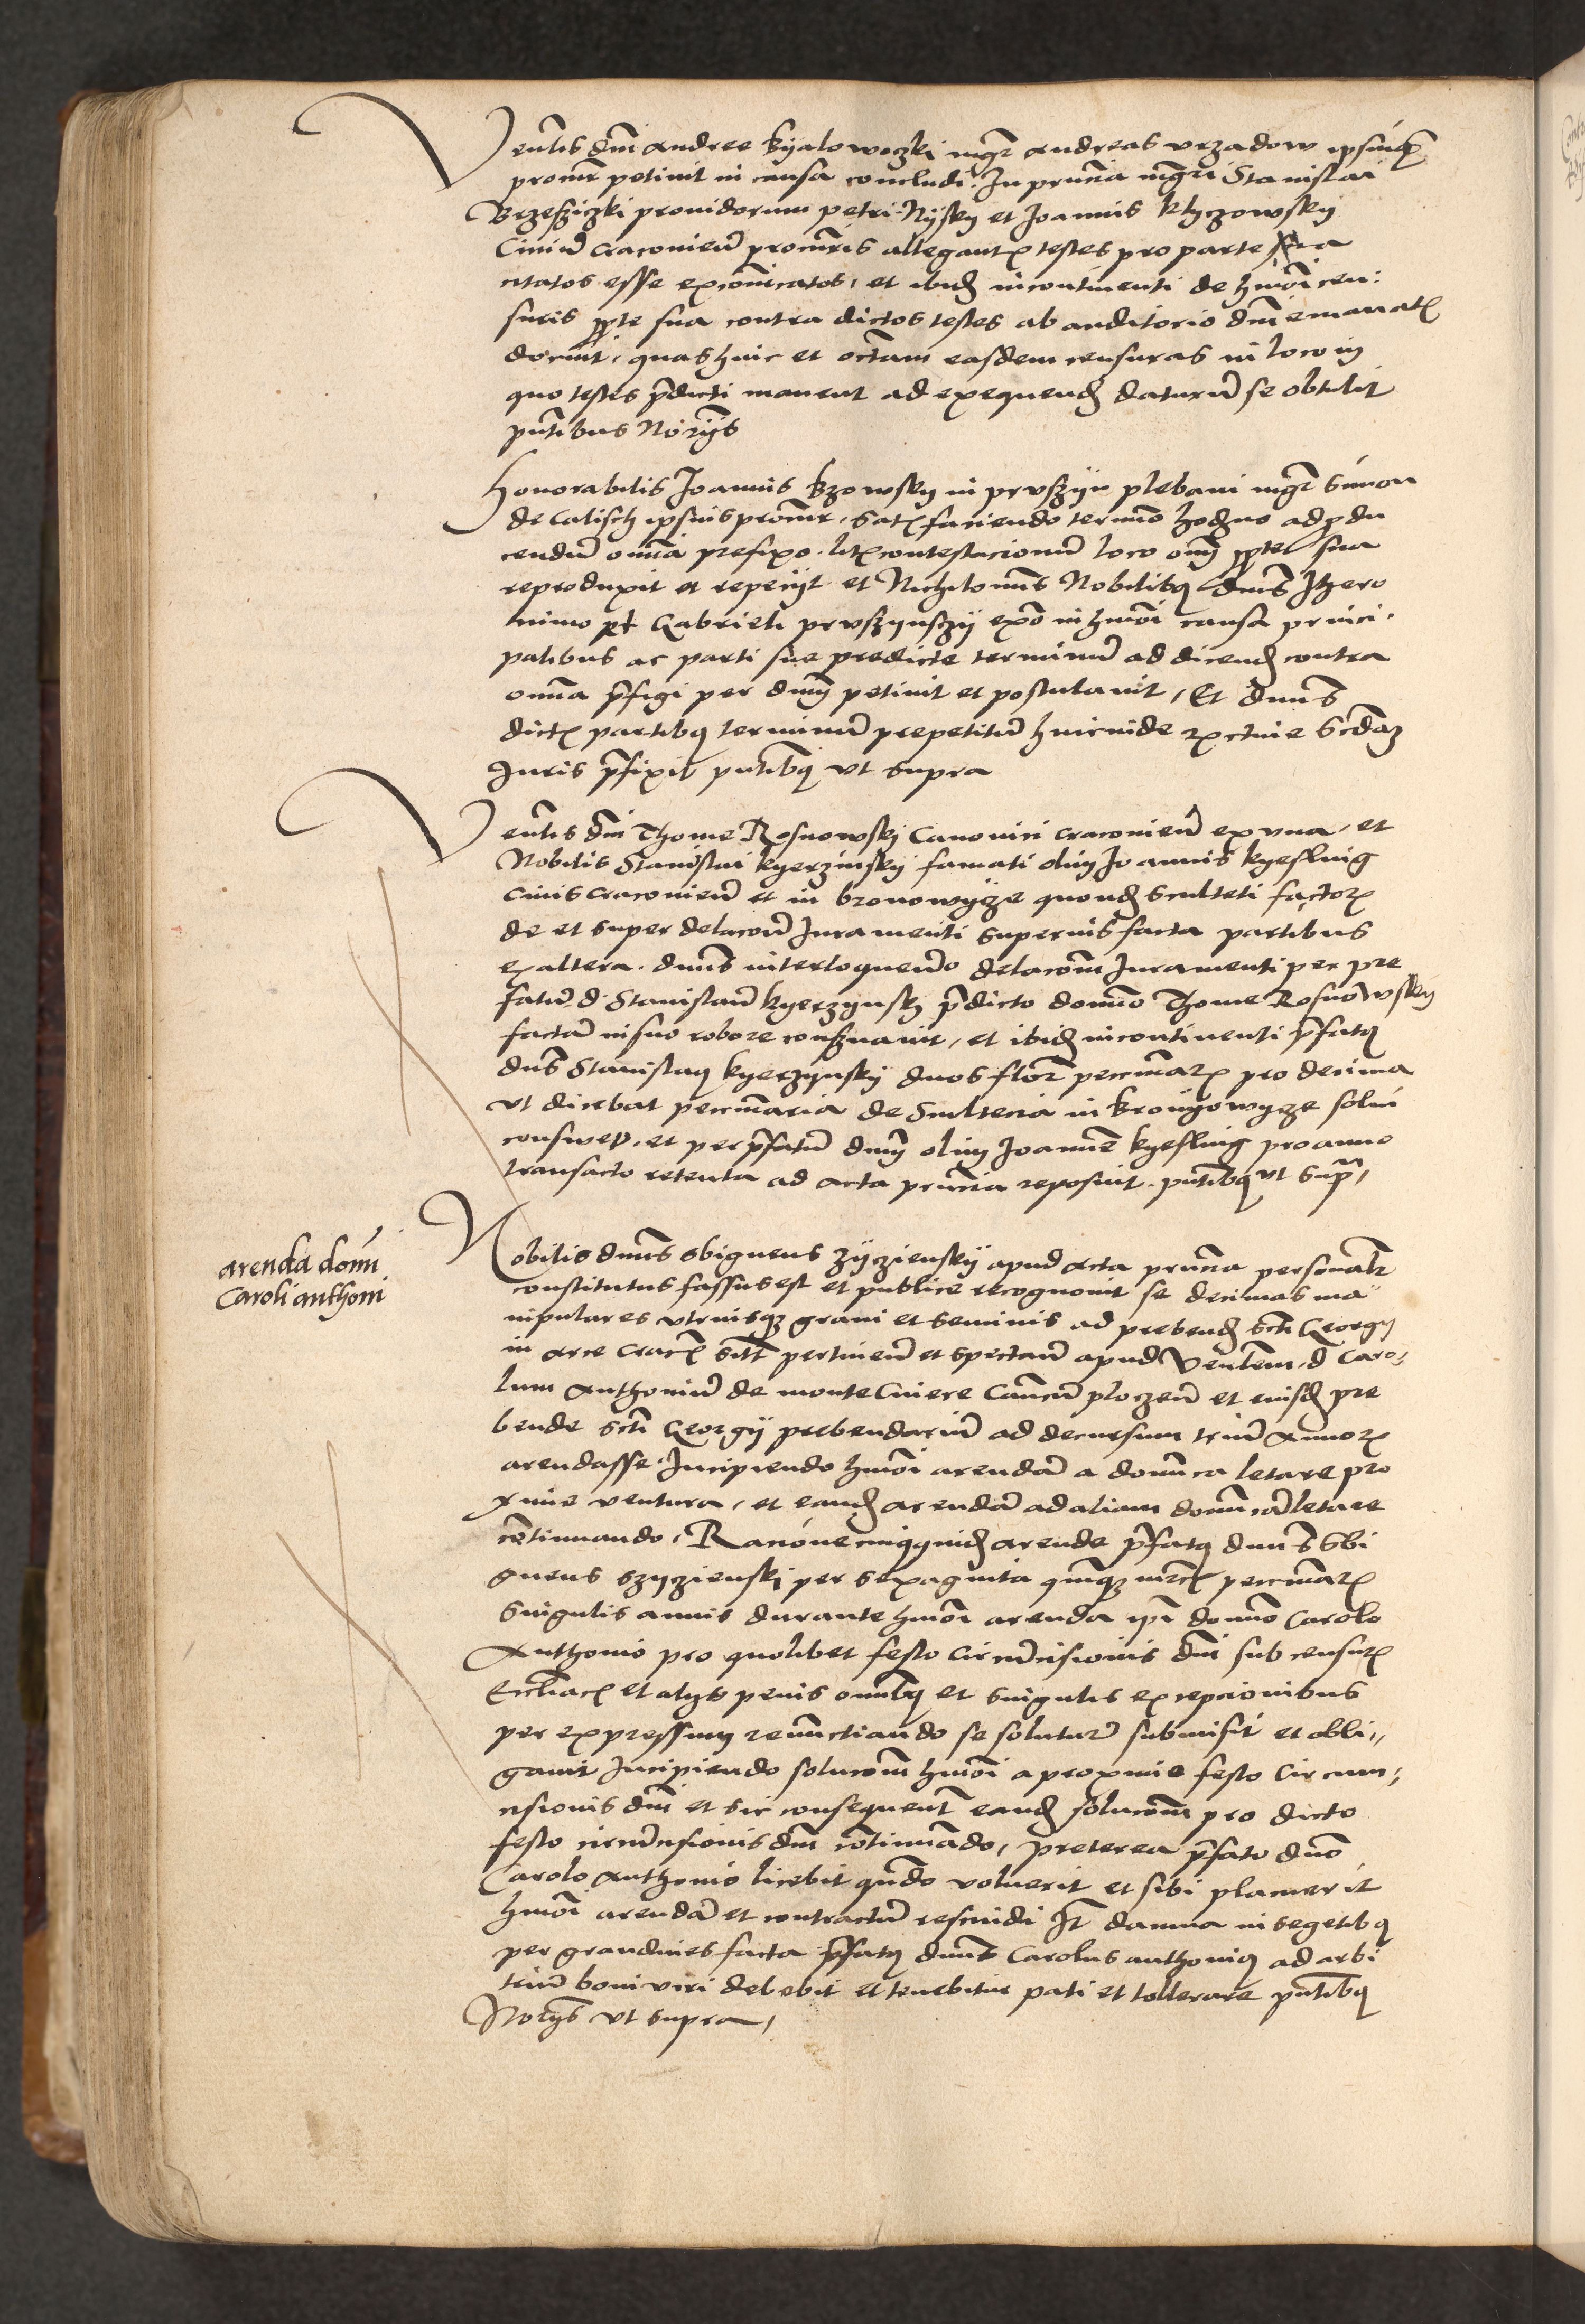 Venlis dni Andree Kyalowoczki mgr Andreas vrzadow ipsiusq
procur petivit in causa concludi. In pruncia mgri Stanislai
Brzesziczki providorum petri Nysky et Joannis Klyczowsky
Civiu Craconien procuris allegantis testes pro parte sua
citatos esse excoicatos, et ibid incontinenti de hmoi cen:
suris pro pte sua contra dictos testes ab auditorio dni emanatis
docuit, quas huic et octam easdem censuras in loco in
quo testes pdicti manent ad exequend daturu se obtulit
pntibus Norijs
Honorabilis Joannis Kzowsky in prvszyn plebani mgr Simon
de Calisch ipsius procur, satisfaciendo termino hodierno ad produ
cendu omnia prefixo. litis contestacionum loco oim pro pte sua
reproduxit et repecijt et Nichilomis Nobilibq dnis Ihero
nimo et Gabrieli prvszynschy expo in hmoi causa princi.
palibus ac parti sue predicte terminu ad dicend contra
omnia pfigi per dnm petivit et postulavit, Et dnus
dictis partibq terminu prepetitu hincinde scdam
Juris pfixit pntibq vt supra
Venlis dni Thome Rosnowski Canonici craconien ex vna, et
Nobilis Stanislai kyerzinsky famati olim Joannis kyesling
civis craconien et in bronowycze quond sculteti factor
de et super delacoe Juramenti superius facta partibus
ex altera. dnus interloquendo delacom Juramenti per pre
fatu d. Stanislau kyerzynsky pdicto domino Thome Rosnowsky
facta in suo robore conservavit, et ibid incontinenti pfatq
dns Stanislaq kyerzynsky duos flor pecuniar pro decima
vt dicebat pecuniaria de Scultecia in bronyowycze solui
consueta, et per pfatu dnm olim Joanne kyesling pro anno
transacto retenta ad acta pruncia reposuit. pntibq vt supr,
arenda domi
Caroli anthoni
Nobilis dnus Sbigneus zycziensky apud Acta pruncia personalr
constitutus fassus est et publice recognovit se decimas ma
nipulares vtriusq grani et seminis ad prebend scti Georgy
in arce Crac sitt pertinen et spectan apud Venlem d Caro,
lum Anthoniu de monte Cinere Cancu ploczen et eiusd pre
bende scti Georgij prebendariu ad decursum triu Annor
arendasse. Incipiendo hmoi arenda a dominica letare pro
xime ventura, et eand arenda ad aliam dominica letare
continuando, Racione cuiqquid arende pfatq dnus Sbi
gneus Szyczienski per sexaginta quinq mrcs pecuniar
singulis annis durante hmoi arenda ipi domino Carolo
Anthonio pro quolibet festo Circucisionis dni sub censuris
Ecclliacis et alijs penis omibq et singulis excepcionibus
per expressum renunctiando se soluturu submisit et obli,,
gavit Incipiendo solucom hmoi a proximo festo Circum,
cisionis dni et sic consequent eand solucom pro dicto
festo circucisionis dni continuado, preterea pfato dno
Carolo Anthonio licebit qndo voluerit et sibi placuerit
hmoi arenda et contractu rescindi It damna in segetibq
per grandines facta pfatq dnus Carolus anthoniq ad arbi
triu boni viri debebit et tenebitur pati et tollerare pntibq
Norijs vt supra,